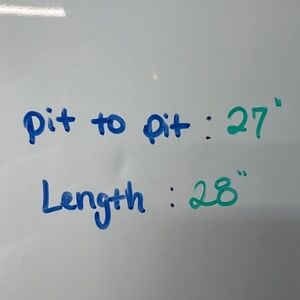 pit to pit : 27"
Length : 28"